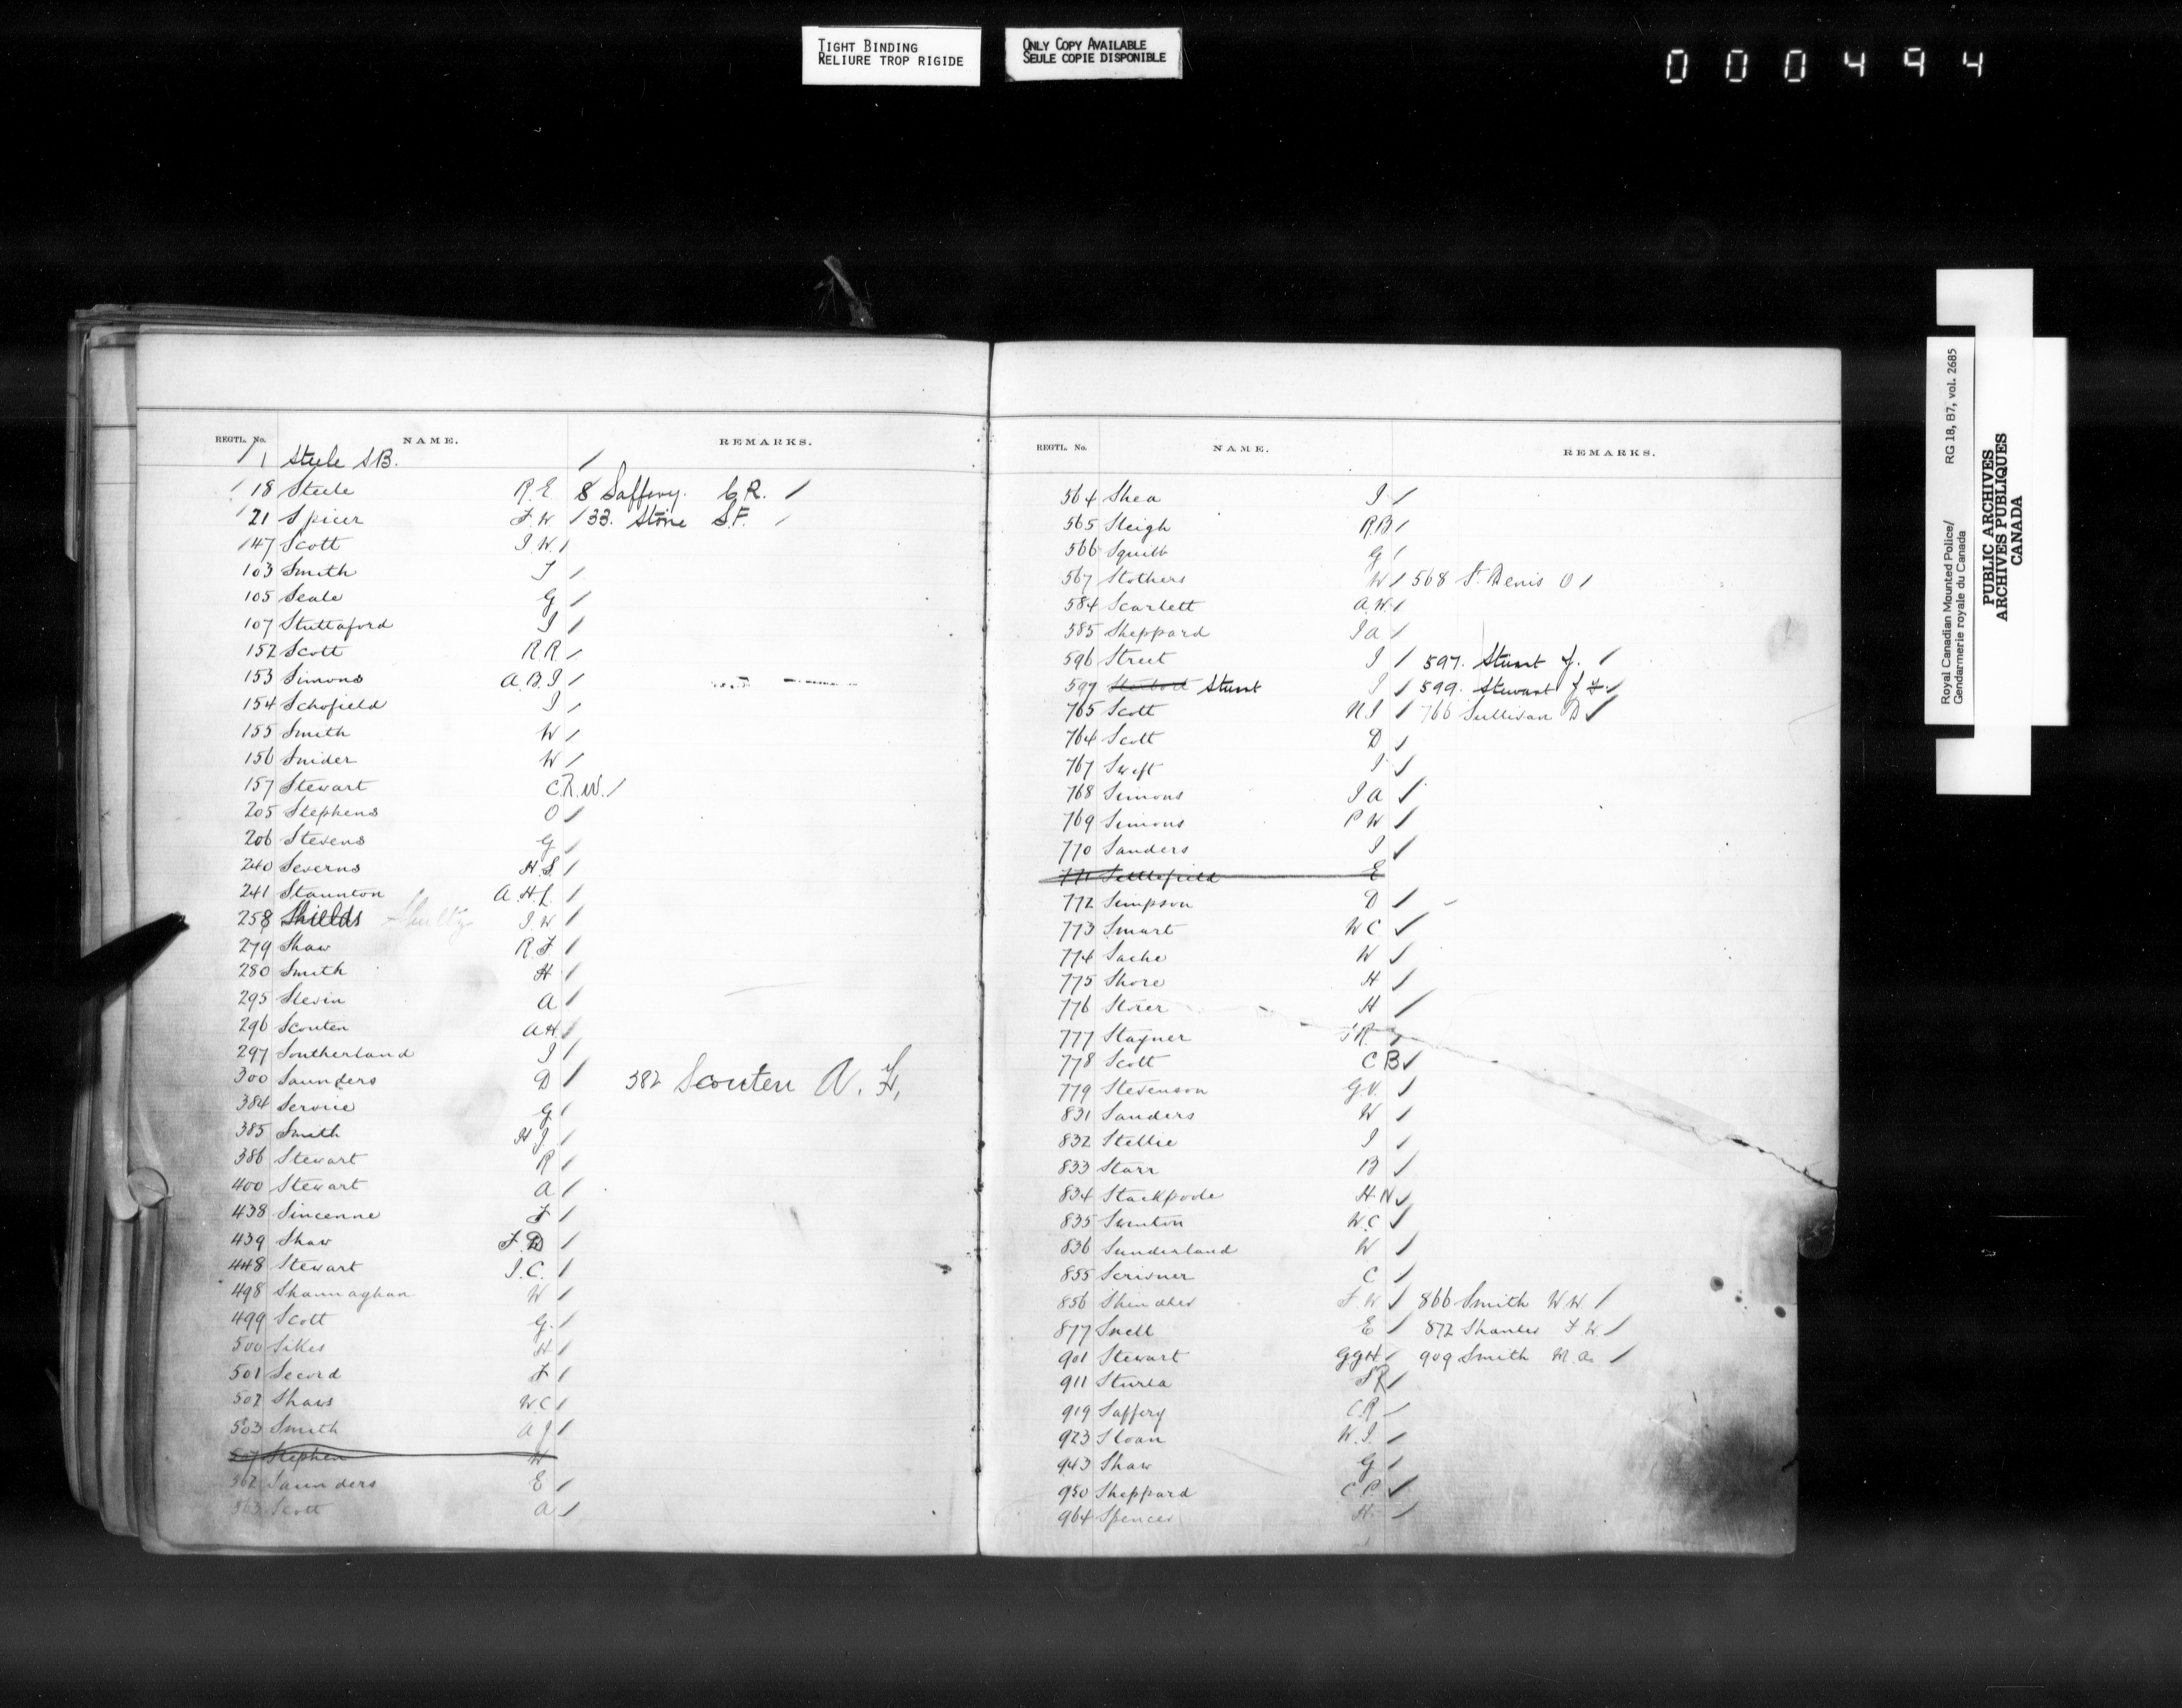 TIGHT BINDING
RELIURE TROP RIGIDE
ONLY COPY AVAILABLE
SEULE COPIE DISPONIBLE
000494
REGTL. No. NAME. REMARKS.
1 Steele S.B.
18 Steele R.E. 8 Saffery. C.R.
21 Spicer F.W 33. Stone S.F.
147 Scott J.W.
103 Smith J
105 Seale G
107 Stuttaford J
152 Scott R.R
153 Simons A.B.J
154 Schofield J
155 Smith W
156 Snider W
157 Stewart C.R.W.
205 Stephens O
206 Stevens G
240 Severns H.S
241 Staunton A.H.L.
258 Shields J.W
279 Shaw R.F
280 Smith H
295 Slevin A
296 Scouten A.H.
297 Southerland J
300 Saunders D 382 Scouten A. H,
384 Service G
385 Smith H J.
386 Stewart R
400 Stewart A
438 Sincenne F
439 Shaw F.D
448 Stewart J.C.
498 Shannaghan W
499 Scott G.
500 Sikes H
501 Secord F
502 Shaws W.C
503 Smith A J
507 Stephen W
562 Saunders E
563 Scott A
REGTL. No. NAME. REMARKS.
564 Shea J
565 Sleigh R.B
566 Squibb G
567 Stothers W 568 St. Denis O
584 Scarlett A.W.
585 Sheppard J A
596 Street J 597. Stuart J.
597 Stuart J 599. Stewart J F.
765 Scott N.J 766 Sullivan D
764 Scott D
767 Swift J
768 Simons J A
769 Simons P W
770 Sanders J
771 Settlefield E
772 Simpson D
773 Smart W C
774 Sache W
775 Shore H
776 Storer H
777 Stayner F R
778 Scott C B
779 Stevenson G.V.
831 Sanders W
832 Stellie J
833 Starr B
834 Stackpoole H.N
835 Swinton W.C
836 Sunderland W
855 Scrivner C
856 Shindler F.W 866 Smith W W.
877 Snell E 872 Shanler F W
901 Stewart G G H 909 Smith M.A.
911 Sturla S R
919 Saffery C.R
923 Sloan W.J.
943 Shaw G
950 Sheppard C.P
964 Spencer H.
Royal Canadian Mounted Police/ RG 18, B7, vol. 2685
Gendarmerie royale du Canada
PUBLIC ARCHIVES
ARCHIVES PUBLIQUES
CANADA